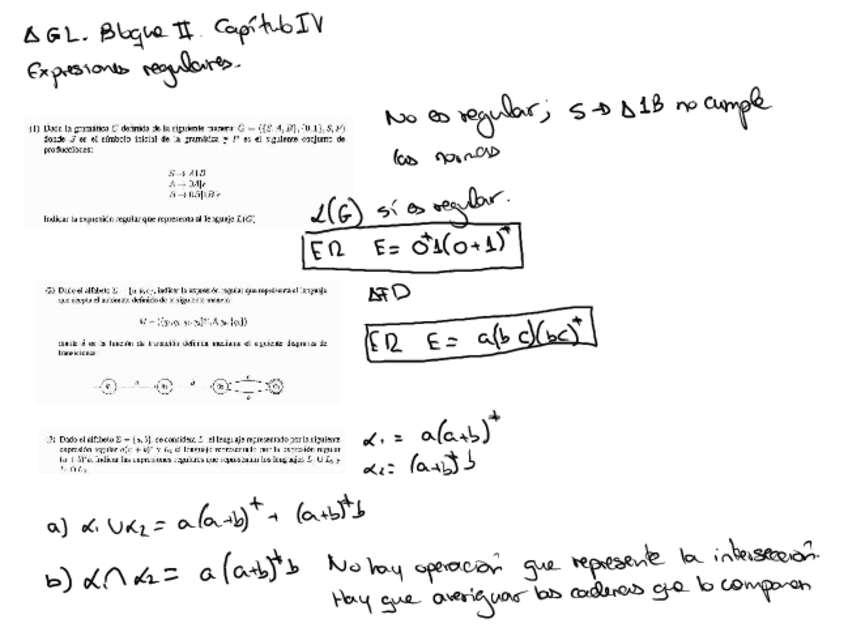 AGL. Bloque II. Capítulo IV
Expresiones regulares.
(1) Dada la gramática G definida de la siguiente manera: G = ({S, A, B}, {0,1}, S, P)
donde S es el símbolo inicial de la gramática y P es el siguiente conjunto de
producciones:
S → A1B
A → 0A|ε
B → 0B|1B|ε
Indicar la expresión regular que representa al lenguaje L(G)
No es regular; S → A1B no cumple
las normas
L(G) sí es regular.
ER E = 0*1(0+1)*
(2) Dado el alfabeto Σ = indicar la expresión regular que representa el lenguaje
que acepta el autómata definido de la siguiente manera:
donde es la función de transición definida mediante el siguiente diagrama de
transiciones:
AFD
ER E = a(b c)(bc)*
(3) Dado el alfabeto Σ = {a, b}, se considera L₁ el lenguaje representado por la siguiente
expresión regular a(a + b)* y L₂ el lenguaje representado por la expresión regular
Indicar las expresiones regulares que representan los lenguajes L₁ ∪ L₂ y
L₁ ∩ L₂
α₁ = a(a+b)*
α₂ = (a+b)*b
a) α₁ ∪ α₂ = a(a+b)* + (a+b)*b
b) α ∩ α₂ = a(a+b)*b No hay operación que represente la intersección.
Hay que averiguar las cadenas que lo componen